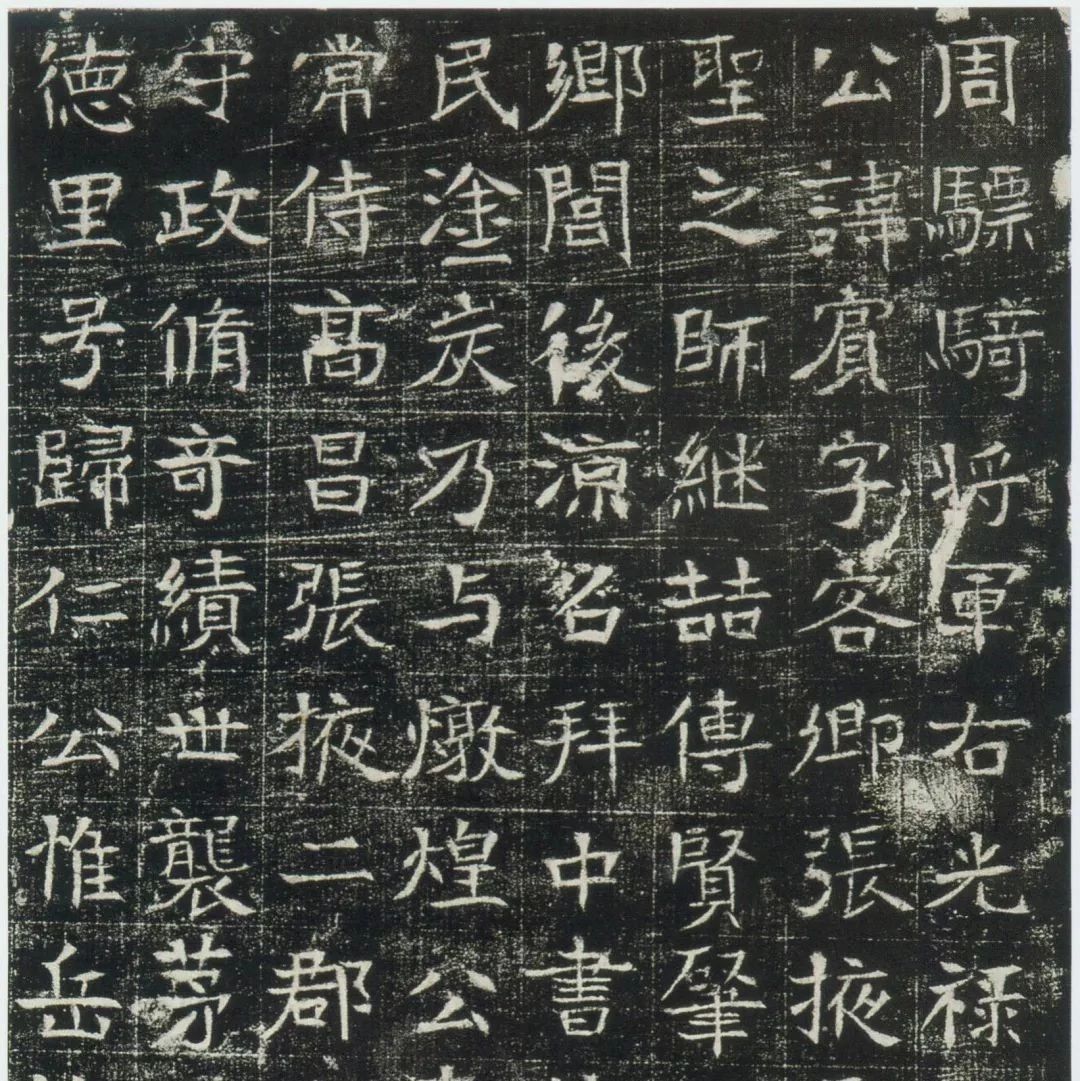 周驃騎将軍右光禄
公諱賓字客卿張掖
聖之師継喆傳賢肇
鄉閭後涼召拜中書
民塗炭乃与燉煌公
常侍髙昌張掖二郡
守政脩竒績世襲茅
徳里号歸仁公惟岳